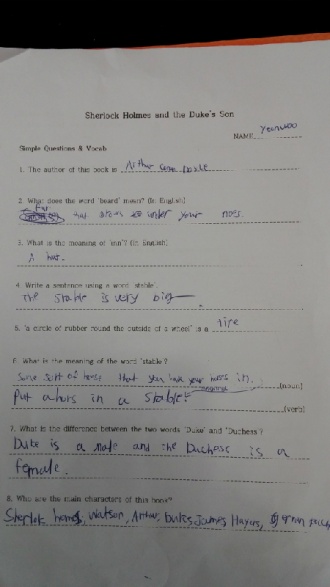 Sherlock Holmes and the Duke's Son
NAME Yeonwoo
Simple Questions & Vocab
1. The author of this book is Arthur conan
2. What does the word 'beard' mean? (In English)
Fur that grows under your
3. What is the meaning of 'inn'? (In English)
4. Write a sentence using a word 'stable'.
The stable is very big
5. 'a circle of rubber round the outside of a wheel' is a tire
6. What is the meaning of the word 'stable'?
Some sort of house that you have your in. (noun)
Put a in a stable (verb)
7. What is the difference between the two words 'Duke' and 'Duchess'?
Duke is a male and the Duchess is a
female.
8. Who are the main characters of this book?
Watson, Arthur, James